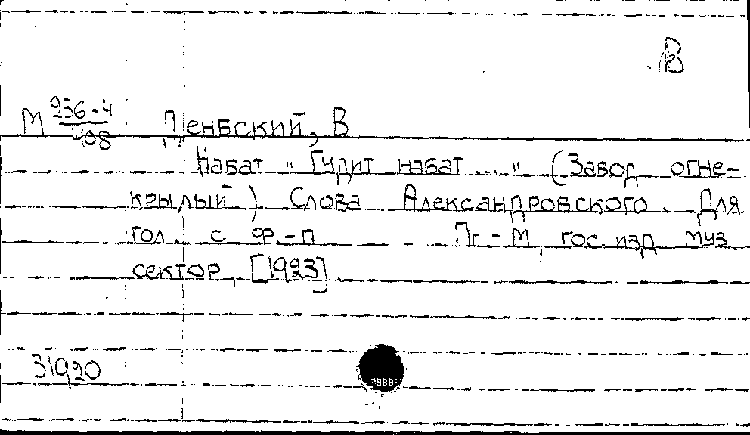 В
М 236-4 Ленбский, В
408
Набат "Гудит набат ..." (Завод огне-
крылый). Слова Александровского. Для
гол. с ф.-п. Пг.-М, гос. изд. муз.
сектор, [1923].
31920